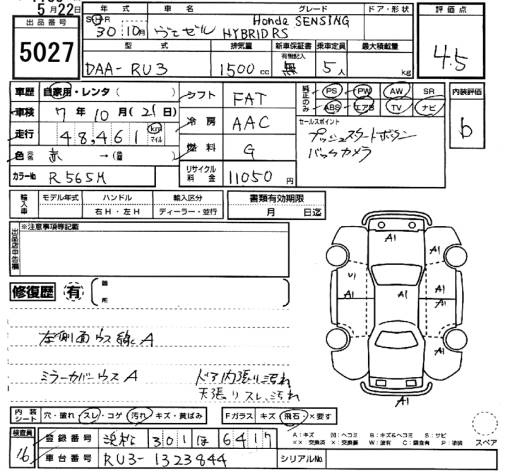 5月22日
年式 車名 グレード ドア・形状 評価点
出品番号 5027
S H R 30 10月 ヴェゼル Honda SENSING
HYBRID RS
4.5
型式 排気量 新車保証書 乗車定員 最大積載量
有無記入
DAA-RU3 1500cc 無 5人 kg
車歴 自家用・レンタ( ) シフト FAT 純正のみ PS PW AW SR 内装評価
ABS エアB TV ナビ b
車検 7年10月(21)日
走行 48,461 km マイル 冷房 AAC セールスポイント
プッシュスタートボタン
バックカメラ
色 元色 赤 →(替 ) 燃料 G
カラーNo R565M リサイクル料金 11050円
輸入車 モデル年式 ハンドル 輸入区分 書類有効期限
右H・左H ディーラー・並行 月 日迄
出品店申告欄 ※注意事項等記載
修復歴 有 箇所
A1 A1
A1
U1 A1
A1 A1 A1
A1
左側面ウス線A
ミラーカバーウスA ドア内張り汚れ
天張りスレ、汚れ
内装シート 穴・破れ スレ・コゲ 汚れ キズ・黄ばみ Fガラス キズ 飛石・×要す
A:キズ U:ヘコミ B:キズ&ヘコミ S:サビ
××:交換済 ×:交換要 W:塗有 C:腐食有 P:塗装 スペア
検査員 16 登録番号 浜松 301 ほ 6417
車台番号 RU3-1323844 シリアルNo